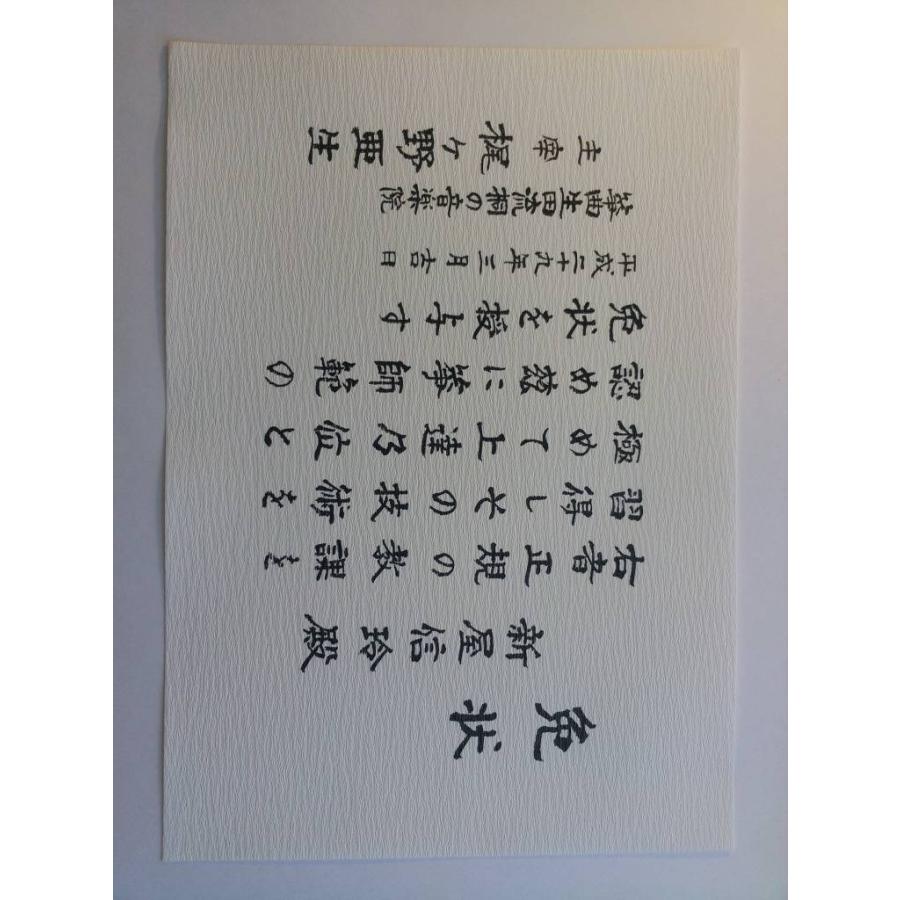 免状
新屋信玲殿
右者正規の教課を
習得しその技術を
極めて上達乃位と
認め茲に箏師範の
免状を授与す
平成二十九年三月吉日
箏曲生田流桐の音楽院
主宰 梶ヶ野亜生